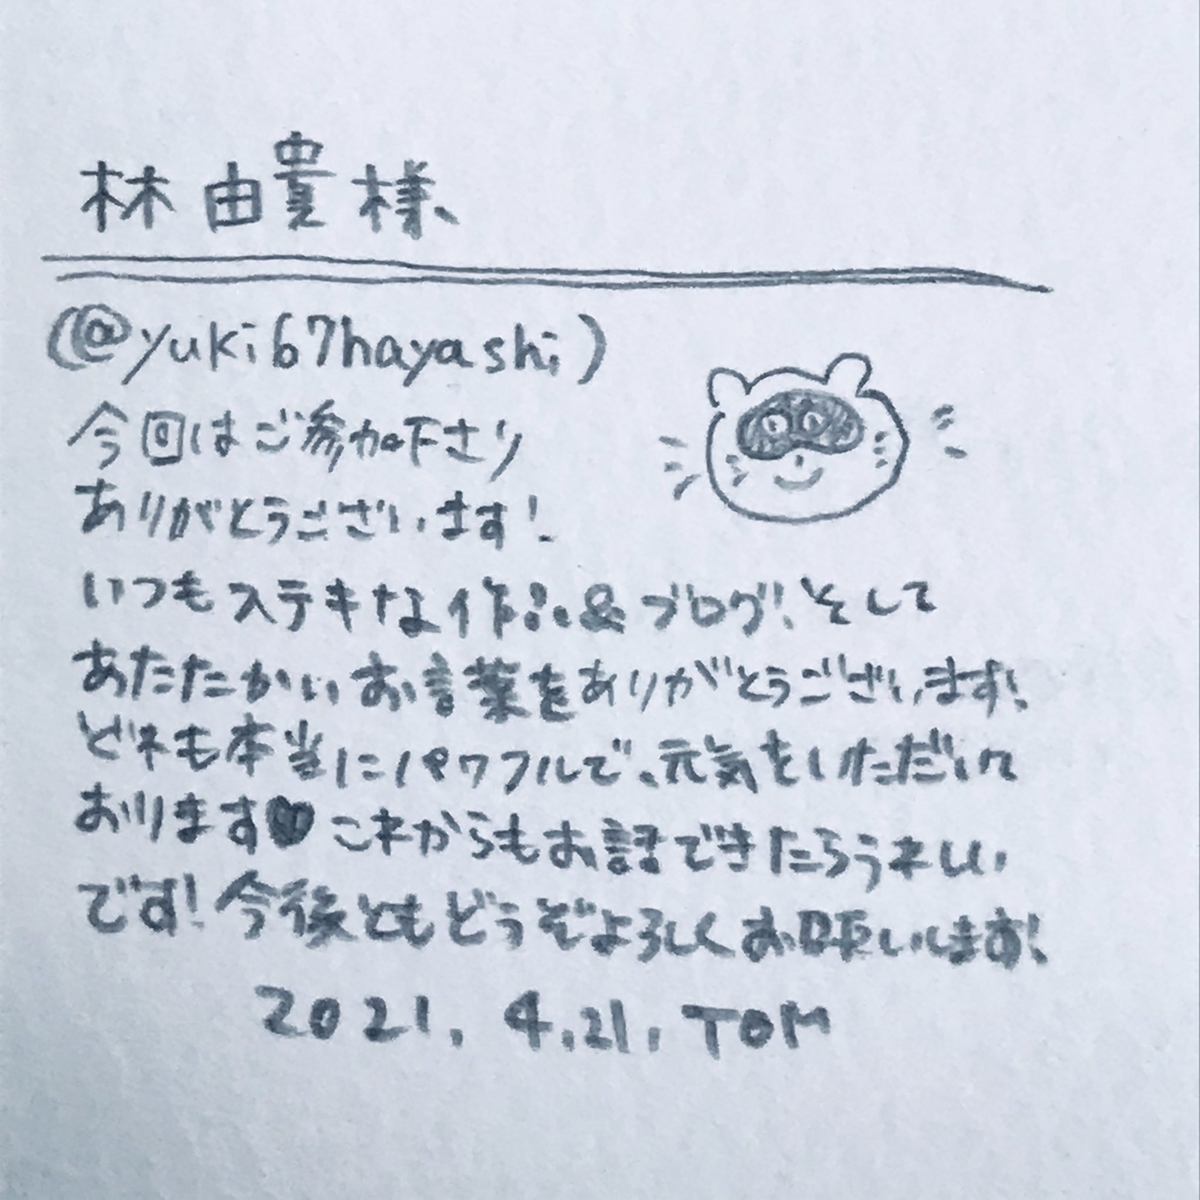 林由貴様、
(@yuki67hayashi)
今回はご参加下さり
ありがとうございます!
いつもステキな作品&ブログ!そして
あたたかいお言葉をありがとうございます!
どれも本当にパワフルで、元気をいただいて
おります♥これからもお話できたらうれしい
です!今後ともどうぞよろしくお願いします!
2021.4.21.TOM